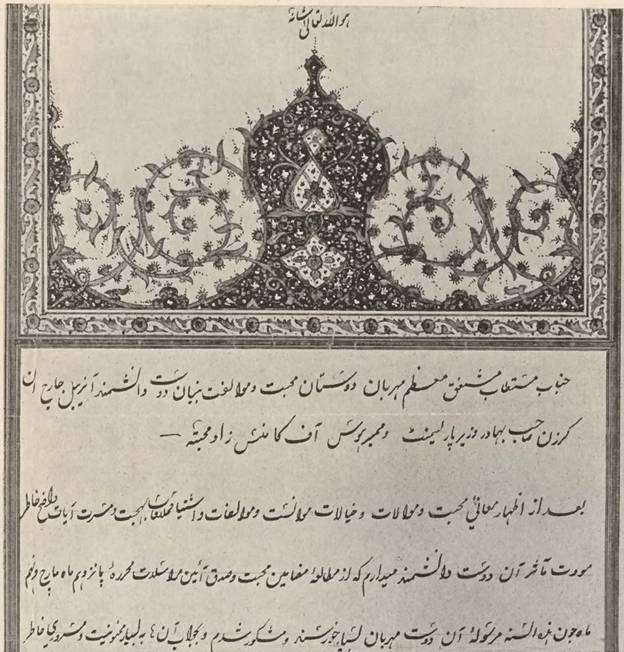 هو الله تعالی شانه
جناب مستطاب مشفق معظم مهربان دوستان محبت و موالفت بنیان دوست دانشمند آنریبل جارج ان
کرزن صاحب بهادر وزیر پارلیمنت و ممبر هوس آف کامنس زاد محبته
بعد از اظهار معانی محبت و موالات و خیالات موانست و موالفات و اشتیاق بهجت و مسرت آیات خاطر
مودت مآثر آن دوست دانشمند میدارم که از مطالعهٔ مضامین محبت و صدق آئین مراسلات محررهٔ پانزدهم ماه مارچ و نهم
ماه جون هذه السنه مرسولهٔ آن دوست مهربان بسیار خورسند و مشکور شدم و بجواب آن ها به بسیار ممنونیت و مسروری خاطر